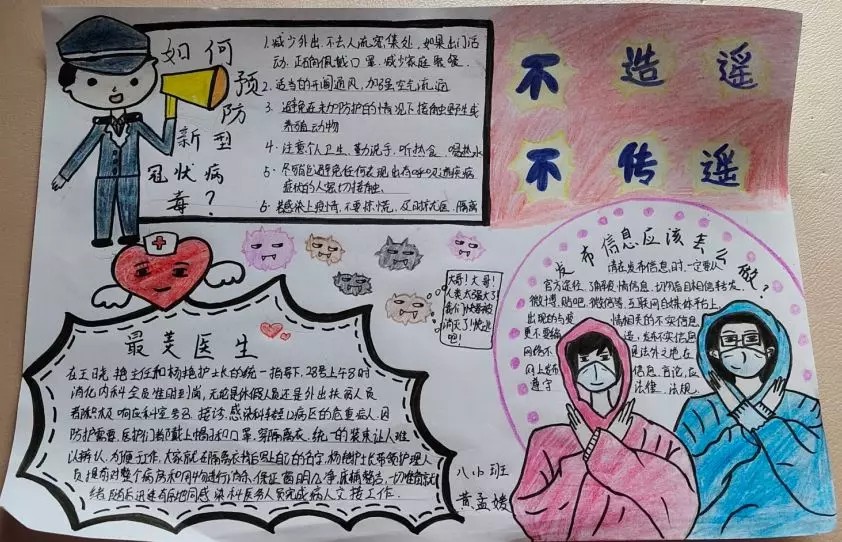 如何
预
防
新型
冠状病
毒?
1.减少外出,不去人流密集处,如果出门活
动,正确佩戴口罩.减少家庭聚餐.
2.适当的开窗通风,加强空气流通
3.避免在未加防护的情况下接触野生或
养殖动物
4.注意个人卫生、勤洗手、吃熟食、喝热水
5.尽可能避免任何表现出有呼吸道疾病
症状的人密切接触.
6.若感染上疫情,不要惊慌,及时就医、隔离
不造遥
不传遥
大哥!大哥!
人类太强大了
我们快要被
消灭了!快逃
吧!
发布信息应该怎么做?
请在发布信息时,一定要从
官方途径,了解疫情信息,切勿盲目相信转发
微博、贴吧、微信等,互联网自媒体平台上
出现的与疫情相关的不实信息
更不要编造,发布不实信息
网络不是法外之地在
网上发布信息、言论,应
遵守法律、法规.
最美医生
主任和杨艳护士长的统一指导下,28号上午8时
消化内科全员准时到岗,无论是休假人员还是外出扶贫人员
都积极响应科室号召.接诊感染科
防护需要,医护们都戴上帽子和口罩,穿隔离衣,统一的装束让人难
以辨认,方便工作,大家就在隔离衣背后写上自己的名字,杨艳护士长带领护理人
员提前对整个病房和
绪
感染科医务人员完成病人交接工作.
八小班
黄孟媛